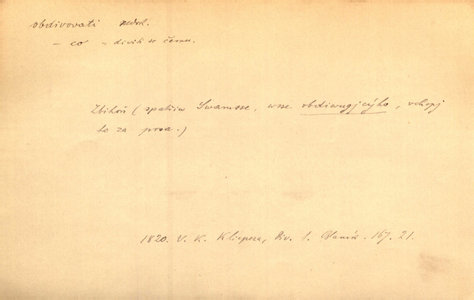 obdivovati nedok.
– co – divit se čemu.
Zbihoň (spatřiw Swarosse, wse obdiwugjcýho, vchopj
ho za prsa.)
1820. V. K. Klicpera, Div. I. Blaník. 167. 21.